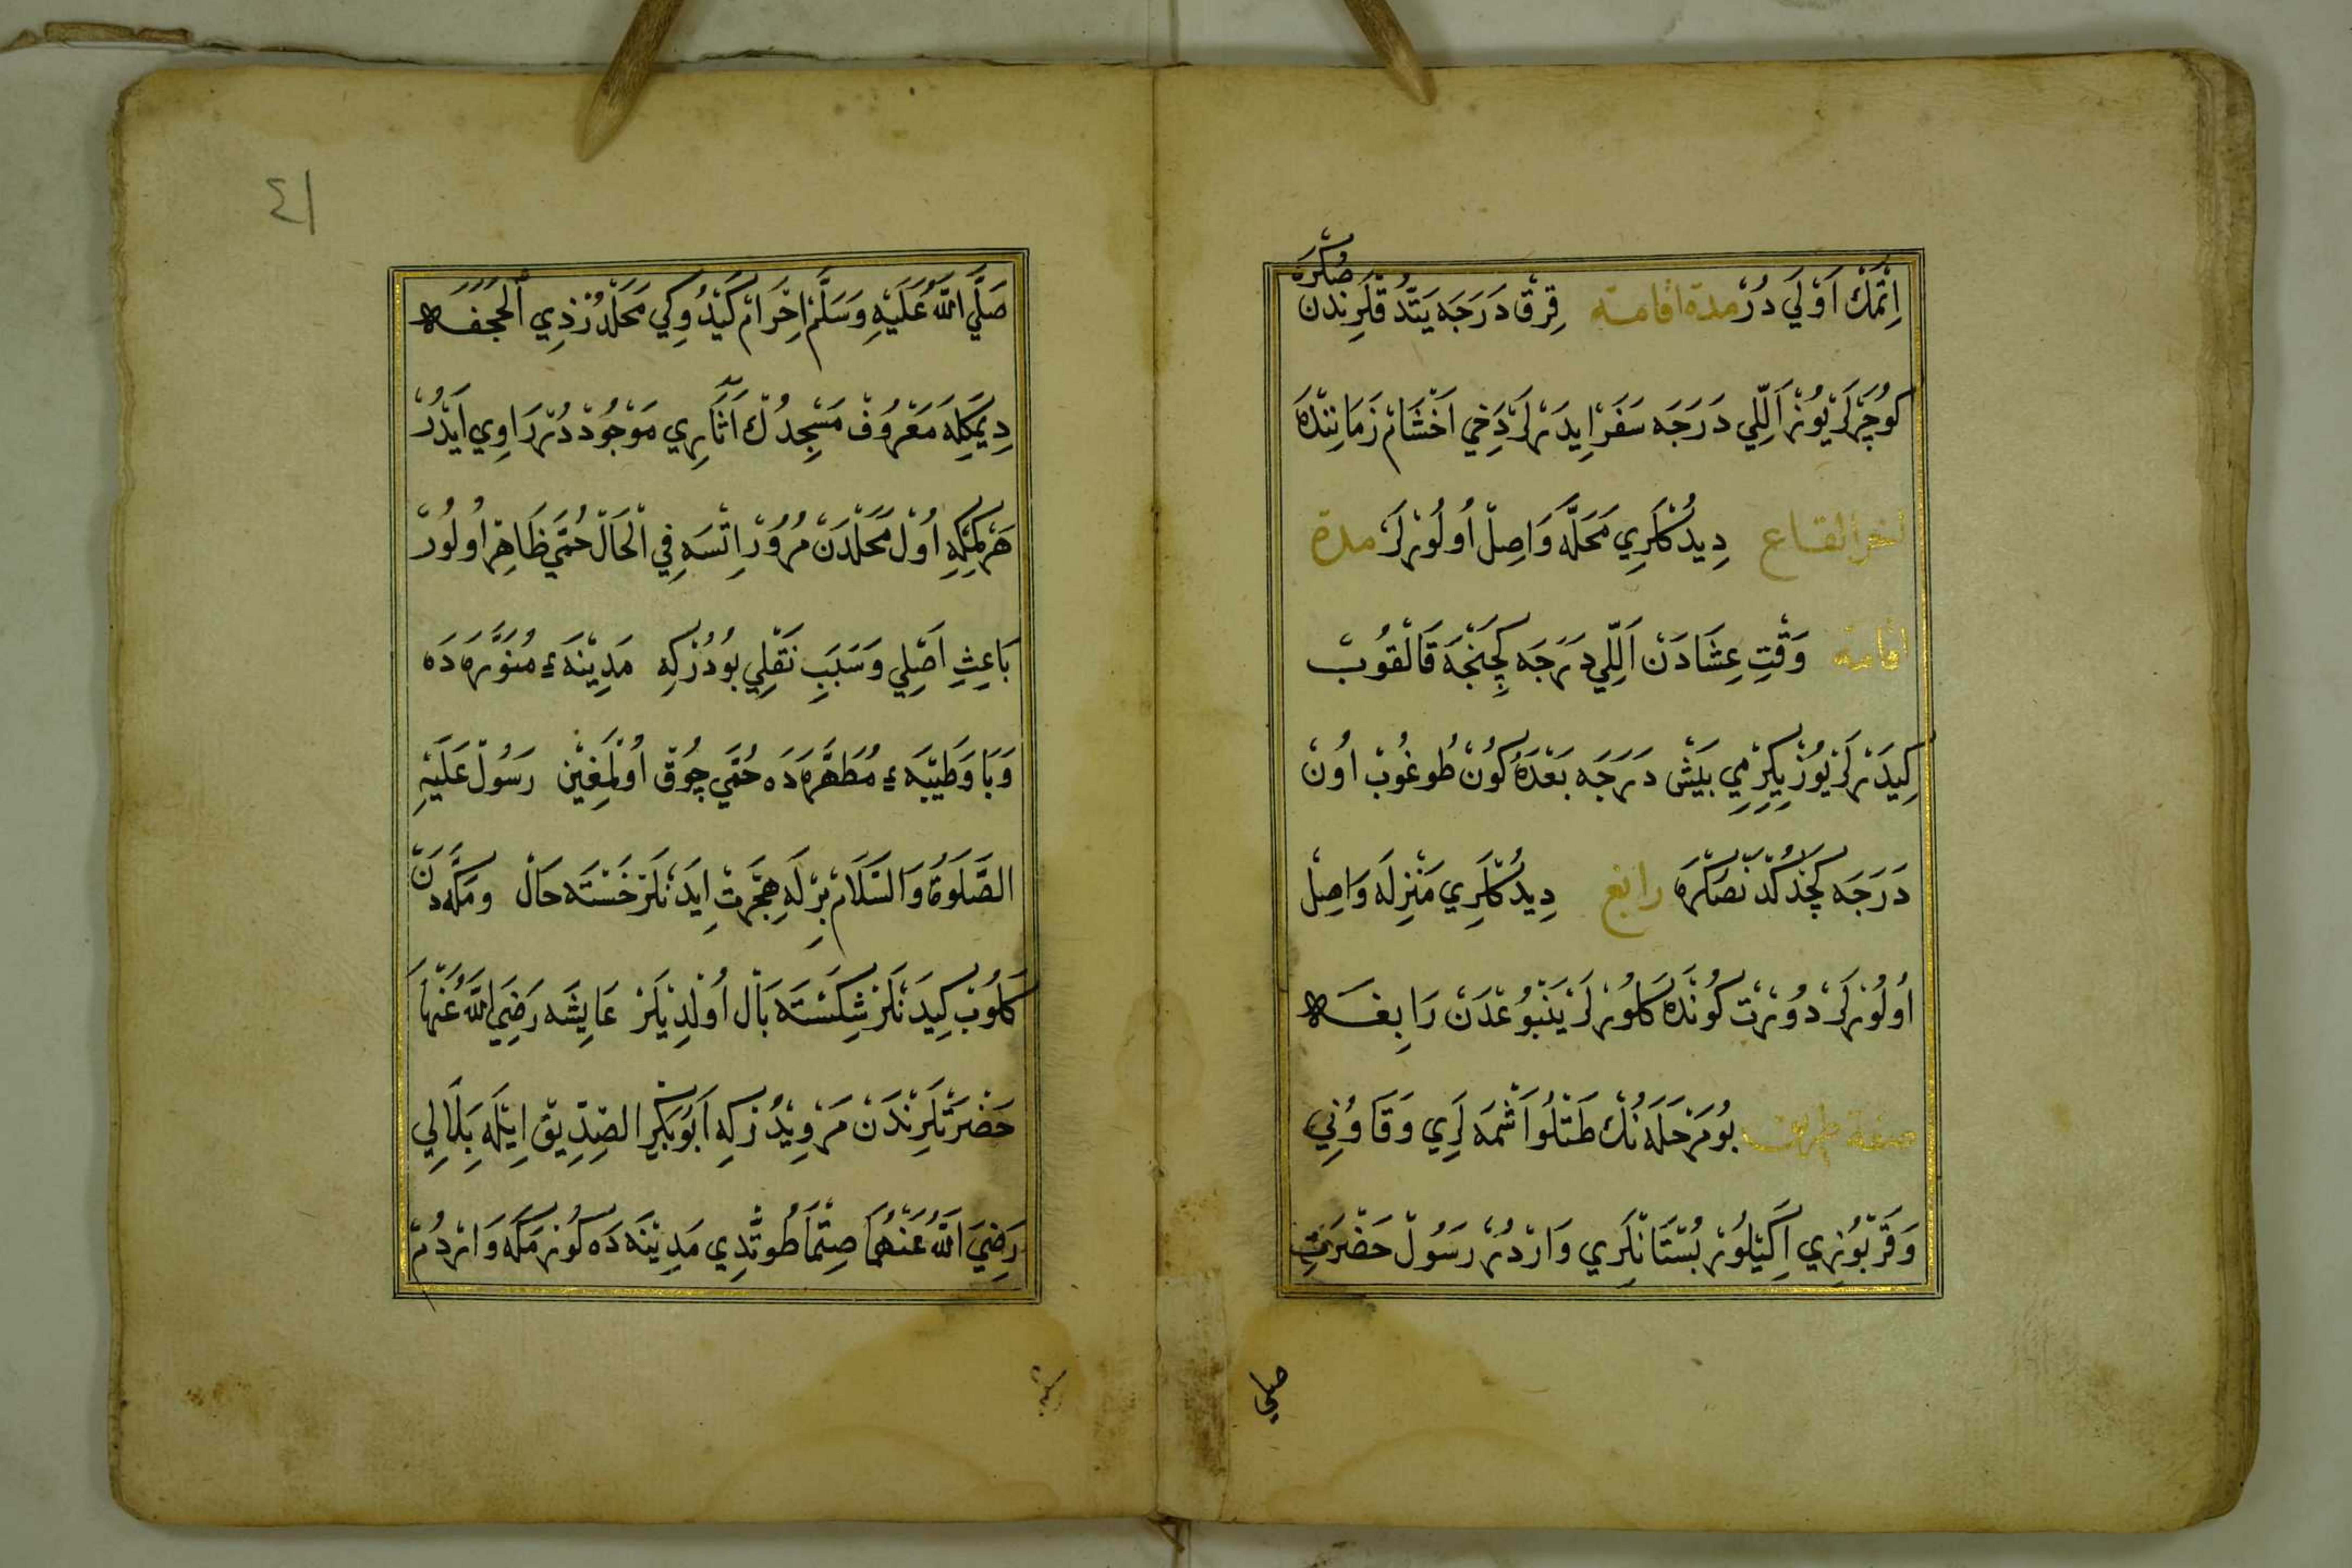 صُكْرَه
اِتْمَكْ اَوْلَي دُرْ مدة اقامته قِرْقْ دَرَجَه يَتْدُقْلَرِنْدَن
كُوچَرْلَرْ يُوزْ اَلِلّي دَرَجَه سَفَرْ اِيدَرْلَرْ دَخِي اَخْشَامْ زَمَانِنْدَه
القاع دِيدُكْلَرِي مَحَلَّه وَاصِلْ اُولُورْلَرْ مدة
اقامته وَقْتِ عِشَادَنْ اَلِلّي دَرَجَه كِچِنْجَه قَالْقُوبْ
كِيدَرْلَرْ يُوزْ يِكِرْمِي بَيْشْ دَرَجَه بَعْدَهُ كُونْ طُوغُوبْ اُونْ
دَرَجَه كَچْدُكْدَنْصَكْرَه رابغ دِيدُكْلَرِي مَنْزِلَه وَاصِلْ
اُولُورْلَرْ دُورْتْ كُونْدَه كَلُورْلَرْ يَنْبُوعْدَنْ رَابِغَه
صفة بُو مَرْحَلَه نُكْ طَتْلُو اَشْمَه لَرِي وَقَاوُنِي
وَقَرْبُوزِي اَكِيلُورْ بُسْتَانْلَرِي وَارْدُرْ رَسُولْ حَضْرَتِ
صلي
٤١
صَلَّي اللّٰهُ عَلَيْهِ وَسَلَّمْ اِحْرَامْ كَيْدُوكِي مَحَلْدُرْ ذِي الْجحفه
دِيمَكِلَه مَعْرُوفْ مَسْجِدُكْ اَثَارِي مَوْجُودْدُرْ رَاوِي اَيْدُرْ
هَرْ كِمْكِه اُولْ مَحَلْدَنْ مُرُورْ اِتْسَه فِي الْحَالْ حُمَّي ظَاهِرْ اُولُورْ
بَاعِثِ اَصْلِي وَسَبَبِ نَقْلِي بُودُرْكِه مَدِينَهء مُنَوَّرَه دَه
وَبَا وَطَيْبَهء مُطَهَّرَه دَه حُمَّي چُوقْ اُولْمَغِيْن رَسُولْ عَلَيْهِ
الصَّلَوةُ وَالسَّلَامْ بِرْلَه هِجْرَتْ اِيدَنْلَرْ خَسْتَه حَالْ ومَكَّه دَنْ
كَلُوبْ كِيدَنْلَرْ شِكَسْتَه بَالْ اُولْدِيلَرْ عَايِشَه رَضِيَ اللّٰهُ عَنْهَا
حَضْرَتْلَرِنْدَنْ مَرْوِيدُرْكِه اَبُوبَكْرِ الصِّدِّيقْ اِيْلَه بِلَالِي
رَضِيَ اللّٰهُ عَنْهُمَا صِتْمَا طُوتْدِي مَدِينَه دَه كُورْمَكَه وَارْدُمْ